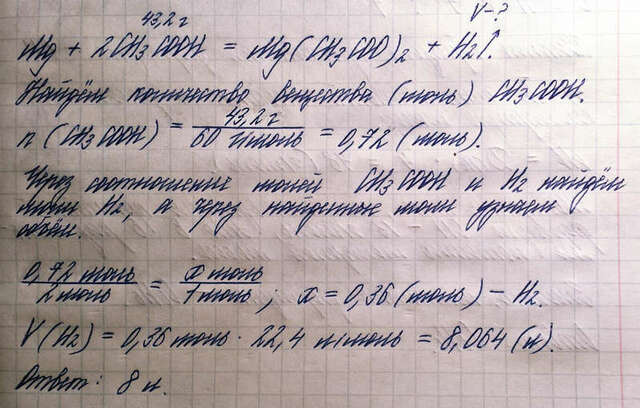 43,2 г V-?
Mg + 2CH3COOH = Mg(CH3COO)2 + H2↑.
Найдём количество вещества (моль) CH3COOH.
n (CH3COOH) = 43,2 г / 60 г/моль = 0,72 (моль).
Через соотношение молей CH3COOH и H2 найдём
моли H2, а через найденные моли узнаем
объём.
0,72 моль / 2 моль = x моль / 1 моль ; x = 0,36 (моль) – H2.
V(H2) = 0,36 моль · 22,4 л/моль = 8,064 (л).
Ответ: 8 л.